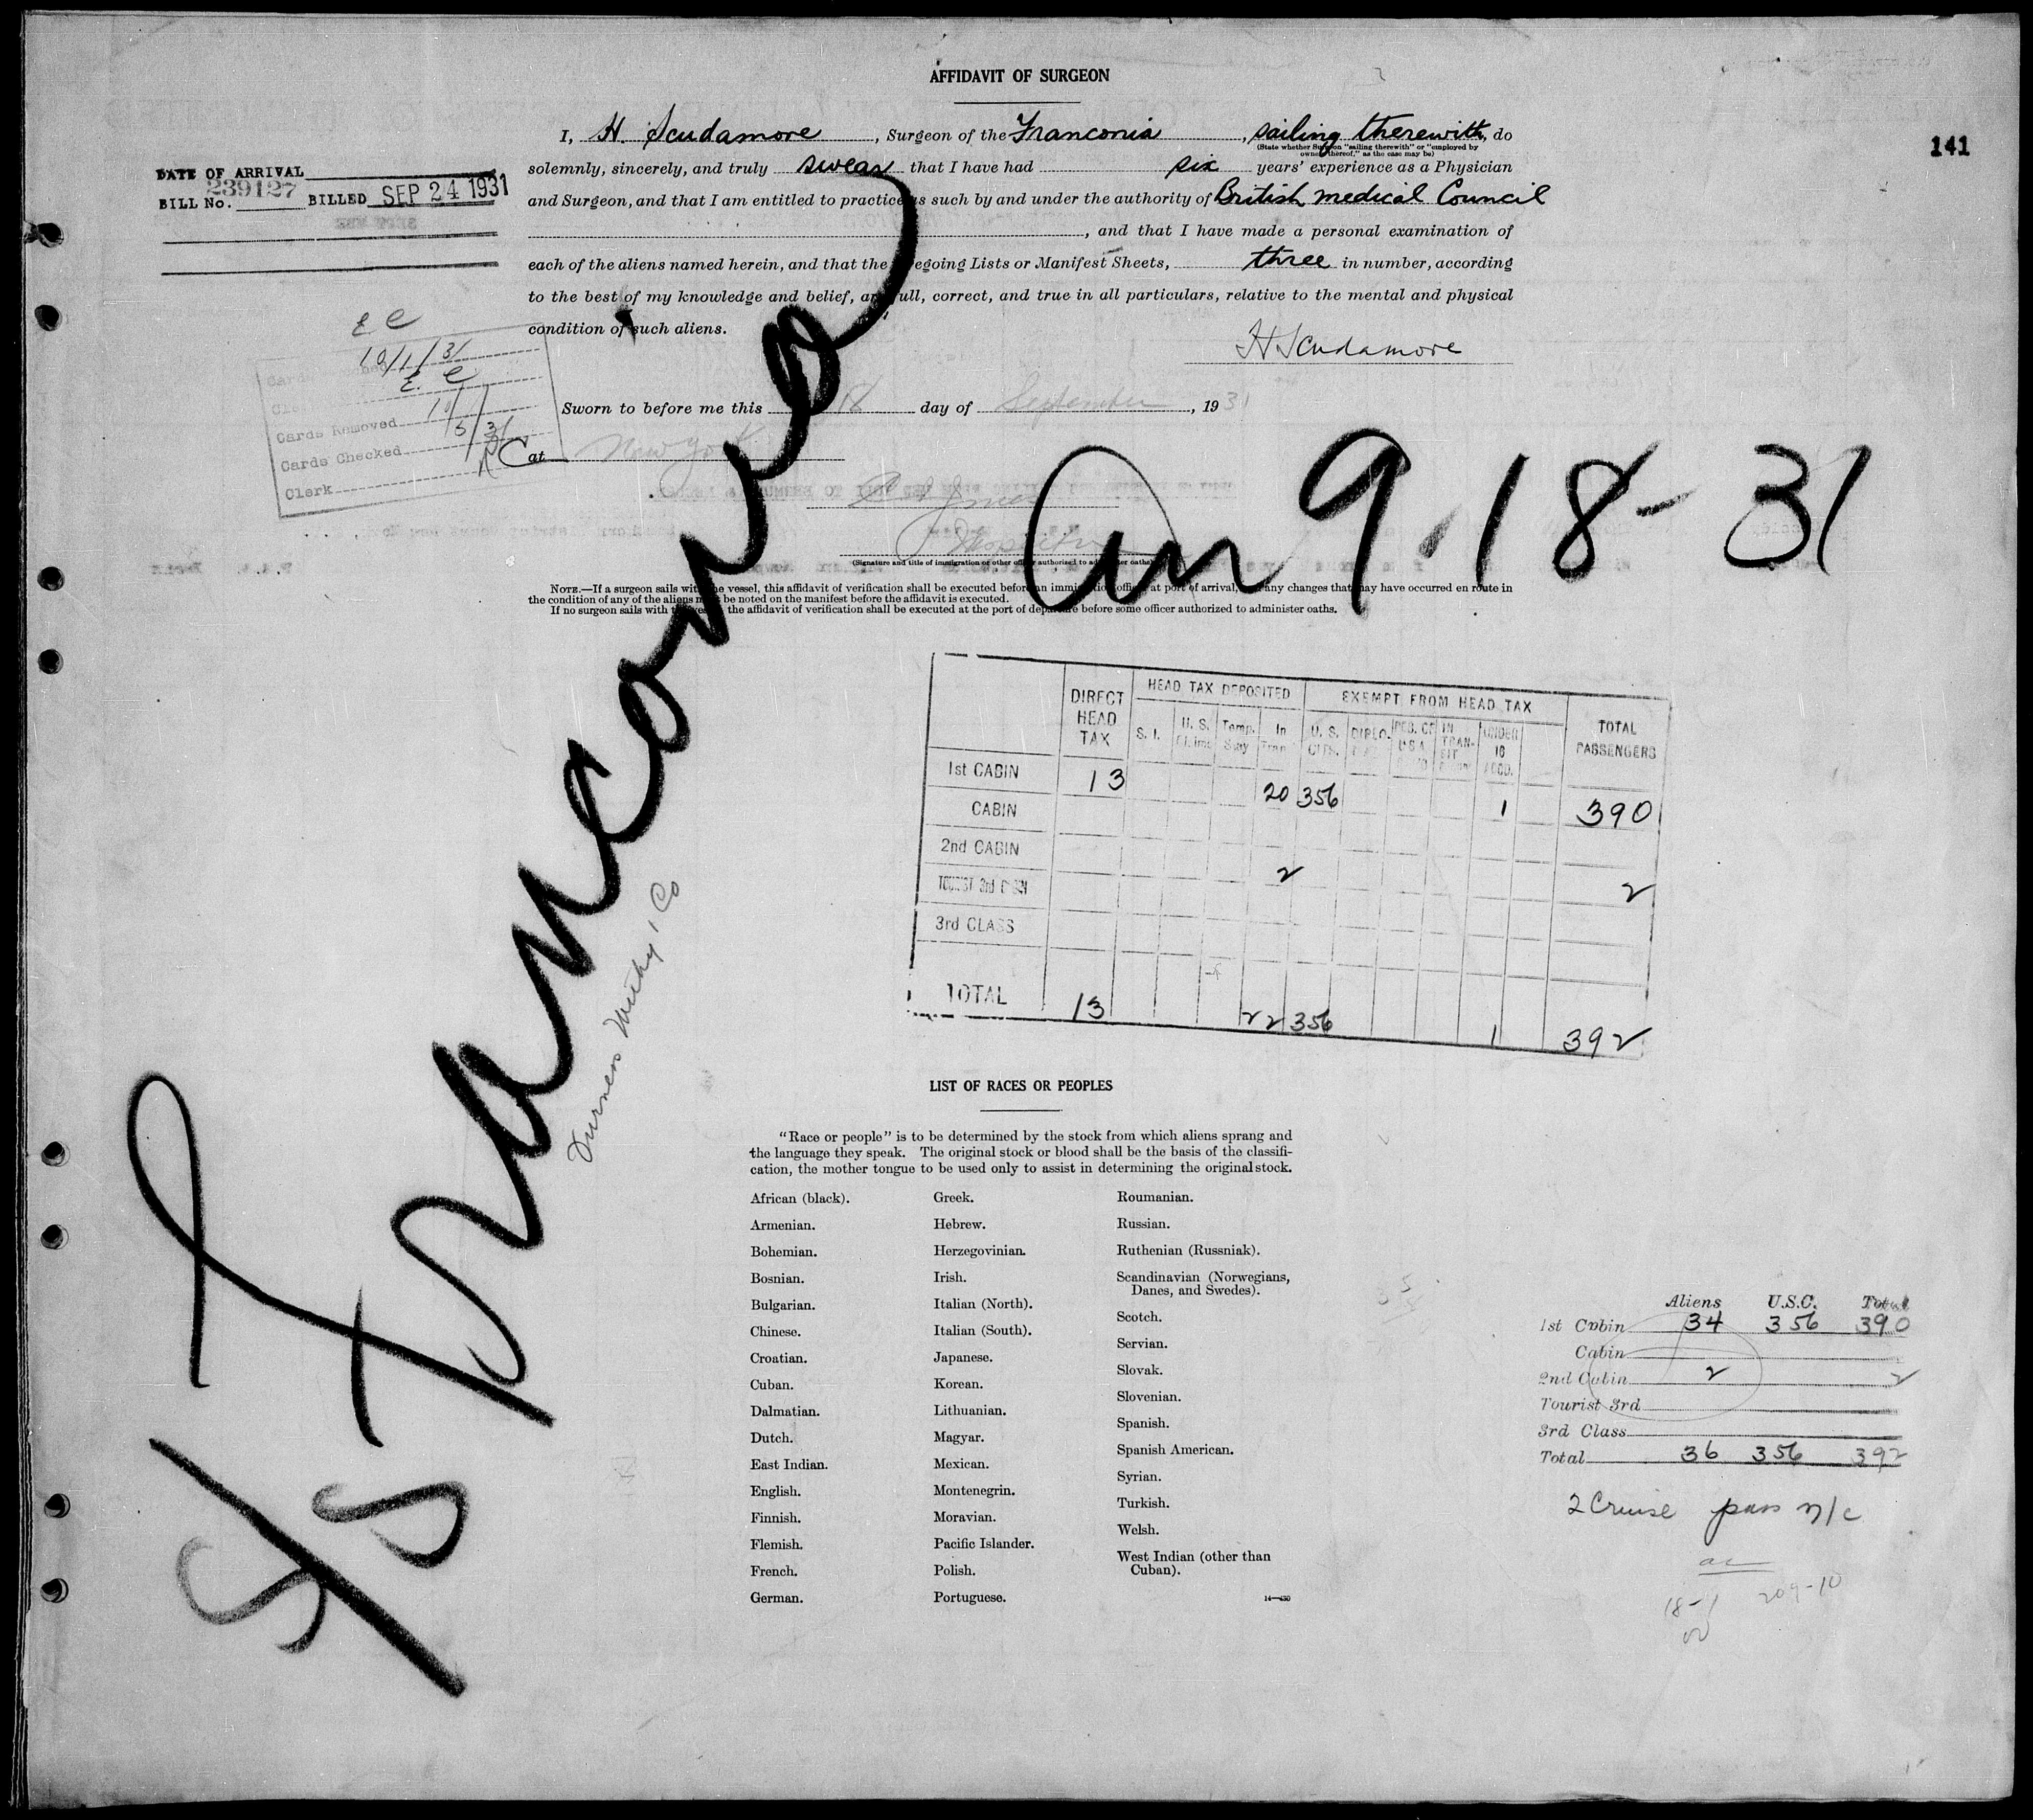 AFFIDAVIT OF SURGEON
141
I, H. Scudamore, Surgeon of the Franconia, sailing therewith, do
(State whether Surgeon "sailing therewith" or "employed by
owner thereof," as the case may be)
solemnly, sincerely, and truly swear that I have had six years' experience as a Physician
and Surgeon, and that I am entitled to practice as such by and under the authority of British medical Council
, and that I have made a personal examination of
each of the aliens named herein, and that the foregoing Lists or Manifest Sheets, three in number, according
to the best of my knowledge and belief, are full, correct, and true in all particulars, relative to the mental and physical
condition of such aliens.
H Scudamore
DATE OF ARRIVAL
239127
BILL No. BILLED SEP 24 1931
E C
10/1/31
E. C
Cards Removed
Cards Checked
Clerk
Sworn to before me this 18 day of September, 1931
at New York
Inspector
(Signature and title of immigration or other officer authorized to administer oaths)
9-18-31
NOTE.—If a surgeon sails with the vessel, this affidavit of verification shall be executed before an immigration officer at port of arrival, and any changes that may have occurred en route in
the condition of any of the aliens must be noted on the manifest before the affidavit is executed.
If no surgeon sails with the vessel, the affidavit of verification shall be executed at the port of departure before some officer authorized to administer oaths.
S/S Franconia
DIRECT HEAD TAX
HEAD TAX DEPOSITED
EXEMPT FROM HEAD TAX
TOTAL PASSENGERS
S. I. U. S. Temp. In U. S. DIPLO. IN TRANSIT UNDER 16
1st CABIN 13 20 356 1 390
CABIN
2nd CABIN 2 2
TOURIST 3rd CABIN
3rd CLASS
TOTAL 13 22 356 1 392
LIST OF RACES OR PEOPLES
"Race or people" is to be determined by the stock from which aliens sprang and
the language they speak. The original stock or blood shall be the basis of the classifi-
cation, the mother tongue to be used only to assist in determining the original stock.
African (black).
Armenian.
Bohemian.
Bosnian.
Bulgarian.
Chinese.
Croatian.
Cuban.
Dalmatian.
Dutch.
East Indian.
English.
Finnish.
Flemish.
French.
German.
Greek.
Hebrew.
Herzegovinian.
Irish.
Italian (North).
Italian (South).
Japanese.
Korean.
Lithuanian.
Magyar.
Mexican.
Montenegrin.
Moravian.
Pacific Islander.
Polish.
Portuguese.
Roumanian.
Russian.
Ruthenian (Russniak).
Scandinavian (Norwegians,
Danes, and Swedes).
Scotch.
Servian.
Slovak.
Slovenian.
Spanish.
Spanish American.
Syrian.
Turkish.
Welsh.
West Indian (other than
Cuban).
14—430
Aliens U.S.C. Total
1st Cabin 34 356 390
Cabin
2nd Cabin 2 2
Tourist 3rd
3rd Class
Total 36 356 392
2 Cruise pass n/c
209-10
18-1